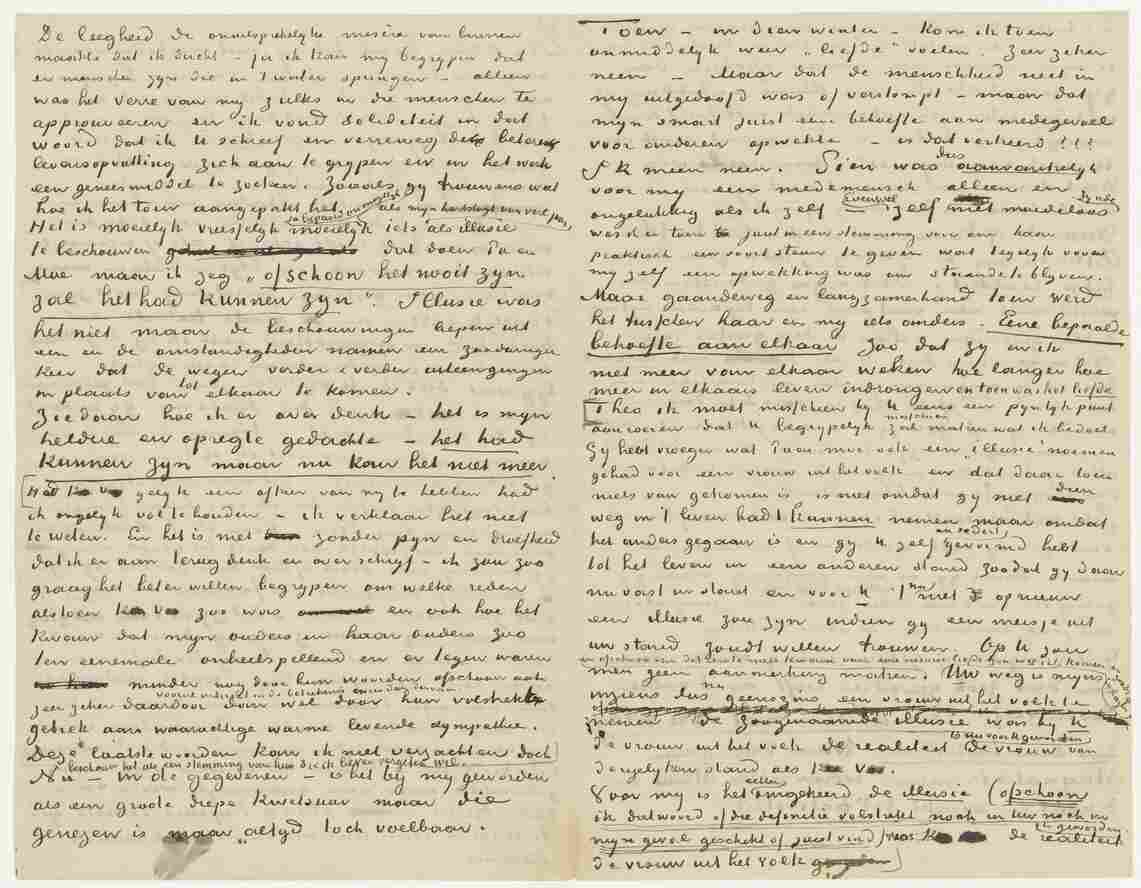 De leegheid de onuitsprekelyke misère van binnen
maakte dat ik dacht – ja ik kan my begrypen dat
er menschen zyn die in 't water springen – alleen
was het verre van my zulks in die menschen te
approuveeren en ik vond soliditeit in dat
woord dat ik U schreef en verreweg de beter
levensopvatting zich aan te grypen en in het werk
een geneesmiddel te zoeken. Zooals gy trouwens wat
hoe ik het toen aangepakt heb,
Het is moeielyk vreesselyk moeielyk iets als illusie
te beschouwen dat doen Pa en
Moe maar ik zeg „ofschoon het nooit zyn
zal het had kunnen zyn". Illusie was
het niet maar de beschouwingen liepen uit
een en de omstandigheden namen een zoodanigen
keer dat de wegen verder & verder uiteengingen
in plaats van tot elkaar te komen.
Ziedaar hoe ik er over denk – het is myn
heldre en opregte gedachte – het had
kunnen zyn maar nu kan het niet meer.
Had K. V. gelyk een afkeer van my te hebben had
ik ongelyk vol te houden – ik verklaar het niet
te weten. En het is niet zonder pyn en droefheid
dat ik er aan terug denk en over schryf – ik zou zoo
graag het beter willen begrypen om welke reden
alstoen K. V. zoo was en ook hoe het
kwam dat myn ouders en haar ouders zoo
ten eenemale onheilspellend en er tegen waren
minder nog door hun woorden ofschoon ook
zeer zeker daardoor dan wel door hun volslagen
gebrek aan waarachtige warme levende sympathie.
Deze laatste woorden kan ik niet verzachten doch
beschouw het als een stemming van hun die ik liever vergeten wil.
Nu – in de gegevenen – is het by my geworden
als een groote diepe kwetsuur maar die
genezen is maar altyd toch voelbaar.
Toen – in dien winter – kon ik toen
onmiddelyk weer „liefde" voelen. Zeer zeker
neen – Maar dat de menschheid niet in
my uitgedoofd was of verstompt – maar dat
myn smart juist een behoefte aan medegevoel
voor anderen opwekte – is dat verkeerd!!!
Ik meen neen. Sien was dus aanvankelyk
voor my een medemensch alleen en
ongelukkig als ik zelf evenwel zelf niet moedeloos zynde
was ik er toen juist in een stemming voor om haar
praktisch een soort steun te geven wat tegelyk voor
my zelf een opwekking was om staande te blyven.
Maar gaandeweg en langzamerhand toen werd
het tusschen haar en my iets anders. Eene bepaalde
behoefte aan elkaar zoo dat zy en ik
niet meer van elkaar weken hoe langer hoe
meer in elkaars leven indrongen en toen was het liefde
Theo ik moet misschien by U eens een pynlyk punt
aanroeren dat U begrypelyk misschien zal maken wat ik bedoel.
Gy hebt vroeger wat Pa en moe ook een „illusie" noemen
gehad voor een vrouw uit het volk en dat daar toen
niets van gekomen is, is niet omdat gy niet dien
weg in 't leven hadt kunnen nemen maar omdat
het anders gegaan is en gy U zelf gevormd hebt
tot het leven in een anderen stand zoodat gy daar
nu vast in staat en voor U 't nu niet op nieuw
een illusie zou zyn indien gy een meisje uit
uw stand zoudt willen trouwen. Op U zou
men geen aanmerking maken. Uw weg is myns
inziens dus nu geenszins een vrouw uit het volk te
nemen de zoogenaamde illusie was by U
de vrouw uit het volk de realiteit de vrouw van
dergelyken stand als K. V.
Voor my is het echter omgekeerd de illusie (ofschoon
ik dat woord of die definitie volstrekt noch in uw noch in
myn geval geschikt of juist vind) was K. de realiteit
de vrouw uit het volk